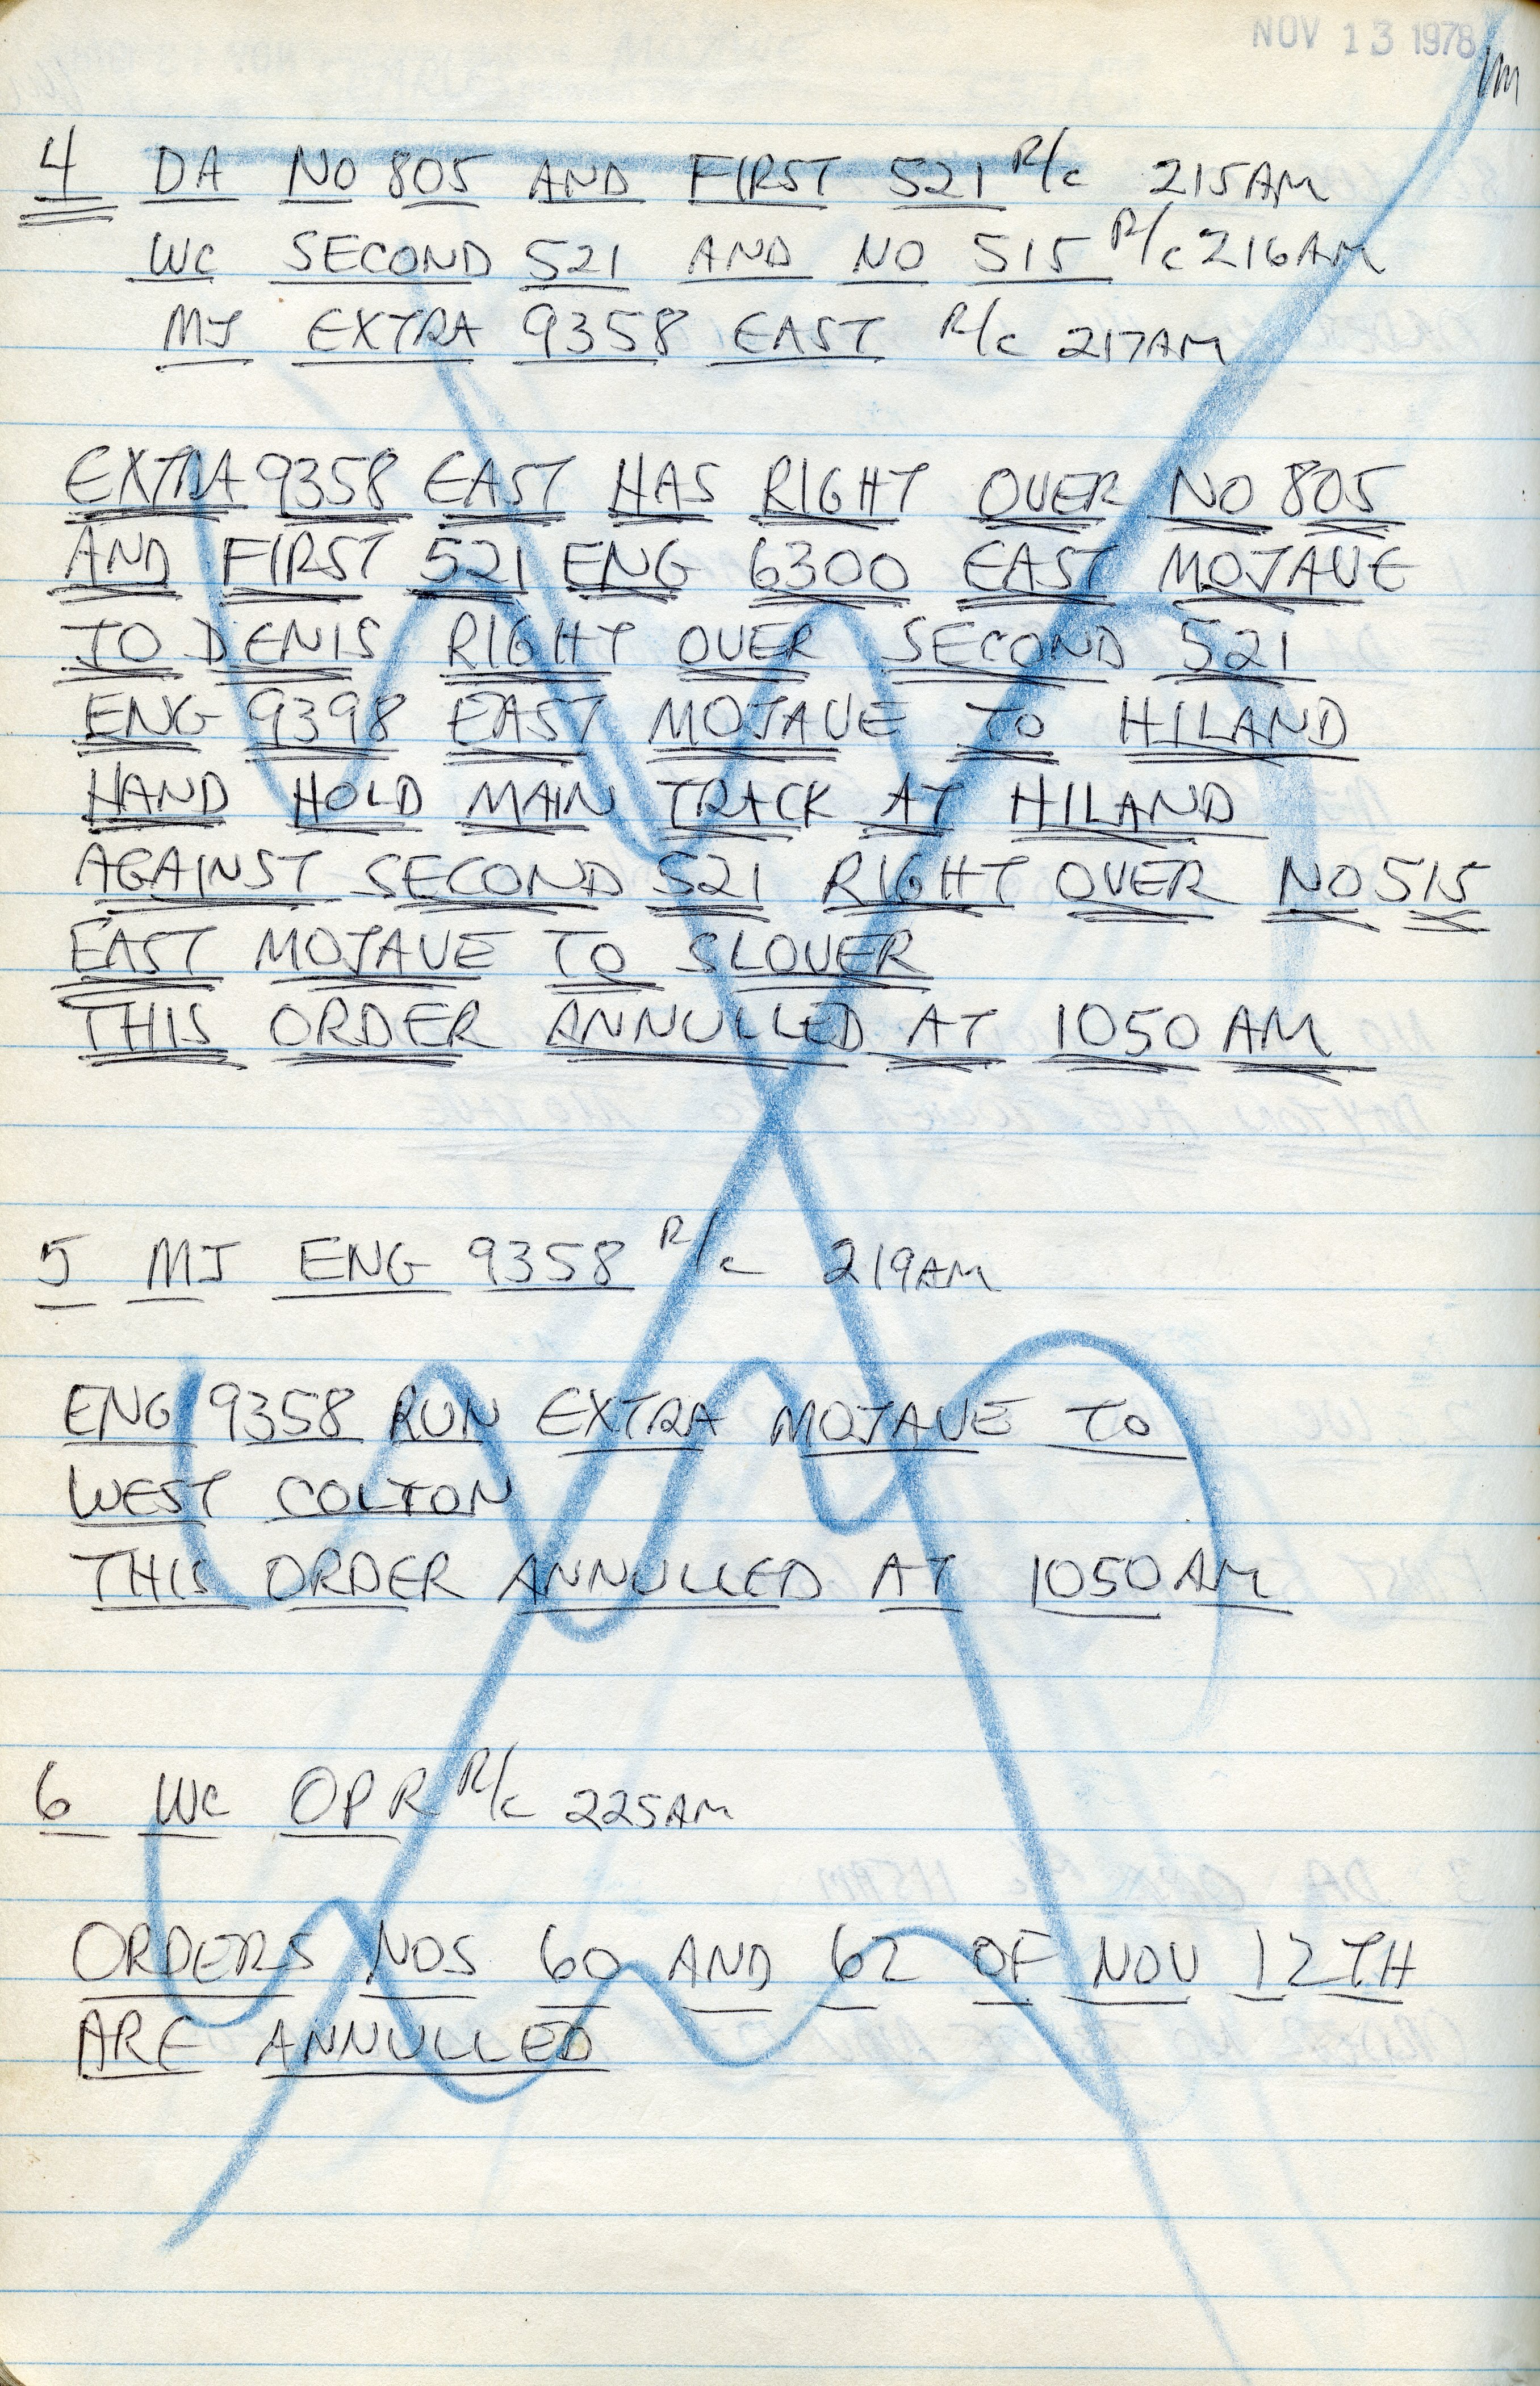 NOV 13 1978
4 DA NO 805 AND FIRST 521 R/c 215AM
WC SECOND 521 AND NO 515 R/c 216AM
MJ EXTRA 9358 EAST R/c 217AM
EXTRA 9358 EAST HAS RIGHT OVER NO 805
AND FIRST 521 ENG 6300 EAST MOJAVE
TO DENIS RIGHT OVER SECOND 521
ENG 9398 EAST MOJAVE TO HILAND
HAND HOLD MAIN TRACK AT HILAND
AGAINST SECOND 521 RIGHT OVER NO 515
EAST MOJAVE TO SLOVER
THIS ORDER ANNULLED AT 1050 AM
5 MJ ENG 9358 R/c 219AM
ENG 9358 RUN EXTRA MOJAVE TO
WEST COLTON
THIS ORDER ANNULLED AT 1050 AM
6 WC OPR R/c 225AM
ORDERS NOS 60 AND 62 OF NOV 12TH
ARE ANNULLED